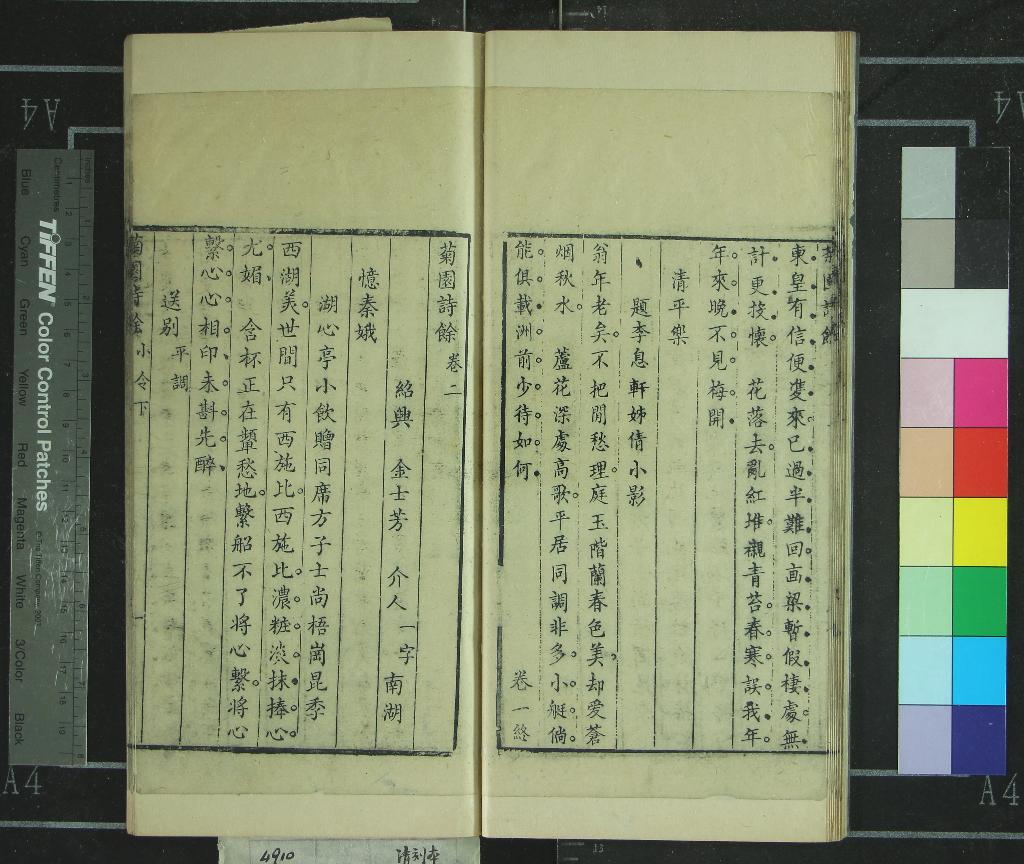 菊園詩餘
東皇有信便隻來已過半難回画梁暫假棲處無
計更投懷　花落去亂紅堆襯青苔春寒誤我年
年來晚不見梅開
清平樂
題李息軒姊倩小影
翁年老矣不把閒愁理庭玉階蘭春色美却愛蒼
烟秋水　蘆花深處高歌平居同調非多小艇倘
能俱載洲前少待如何
卷一終
菊園詩餘卷二
紹興　金士芳　介人一字南湖
憶秦娥
湖心亭小飲贈同席方子士尚梧崗昆季
西湖美世間只有西施比西施比濃粧淡抹捧心
尤媚　含杯正在顰愁地繫船不了將心繫將心
繫心心相印未斟先醉
送別平調
菊園詩餘小令下
一
A4
A4
A4
A4
TIFFEN Color Control Patches
© The Tiffen Company, 2007
Centimetres
Inches
Blue
Cyan
Green
Yellow
Red
Magenta
White
3/Color
Black
4910
清刻本